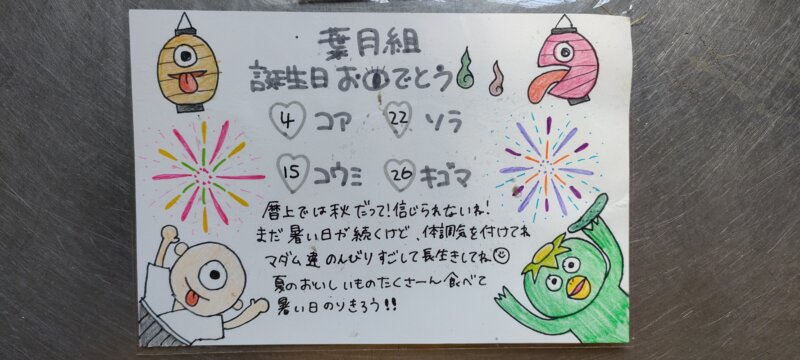 葉月組
誕生日おめでとう
4 コア 22 ソラ
15 コウミ 26 キゴマ
暦上では秋だって!信じられないね!
まだ暑い日が続くけど、体調気を付けてね
マダム達 のんびりすごして長生きしてね
夏のおいしいものたくさーん食べて
暑い日のりきろう!!